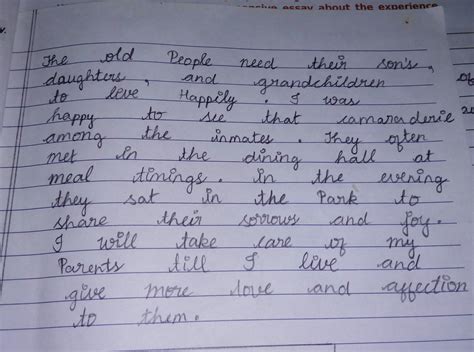 essay about the experience
The old People need their son's,
daughters, and grandchildren
to live Happily. I was
happy to see that camaraderie
among the inmates. They often
met in the dining hall at
meal timings. in the evening
they sat in the Park to
share their sorrows and joy.
I will take care of my
Parents till I live and
give more love and affection
to them.